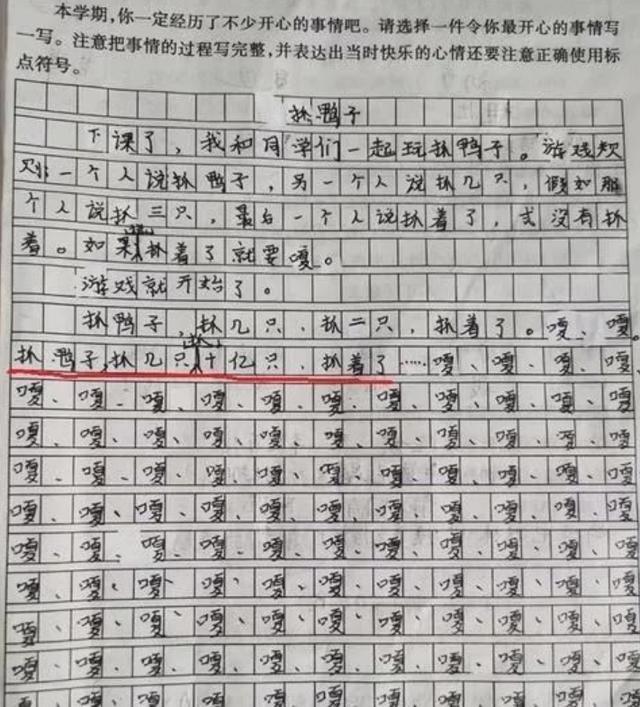 本学期，你一定经历了不少开心的事情吧。请选择一件令你最开心的事情写
一写。注意把事情的过程写完整，并表达出当时快乐的心情还要注意正确使用标
点符号。
抓鸭子
下课了，我和同学们一起玩抓鸭子。游戏规
则：一个人说抓鸭子，另一个人说抓几只，假如那
个人说抓三只，最后一个人说抓着了，或没有抓
着。如果抓着了就要嘎。
游戏就开始了。
抓鸭子，抓几只，抓二只，抓着了。嘎、嘎。
抓鸭子，抓几只，抓十亿只，抓着了……嘎、嘎、嘎、嘎
嘎、嘎、嘎、嘎、嘎、嘎、嘎、嘎、嘎、嘎、嘎
嘎、嘎、嘎、嘎、嘎、嘎、嘎、嘎、嘎、嘎、嘎
嘎、嘎、嘎、嘎、嘎、嘎、嘎、嘎、嘎、嘎、嘎
嘎、嘎、嘎、嘎、嘎、嘎、嘎、嘎、嘎、嘎、嘎
嘎、嘎、嘎、嘎、嘎、嘎、嘎、嘎、嘎、嘎、嘎
嘎、嘎、嘎、嘎、嘎、嘎、嘎、嘎、嘎、嘎、嘎
嘎、嘎、嘎、嘎、嘎、嘎、嘎、嘎、嘎、嘎、嘎
嘎、嘎、嘎、嘎、嘎、嘎、嘎、嘎、嘎、嘎、嘎
嘎、嘎、嘎、嘎、嘎、嘎、嘎、嘎、嘎、嘎、嘎